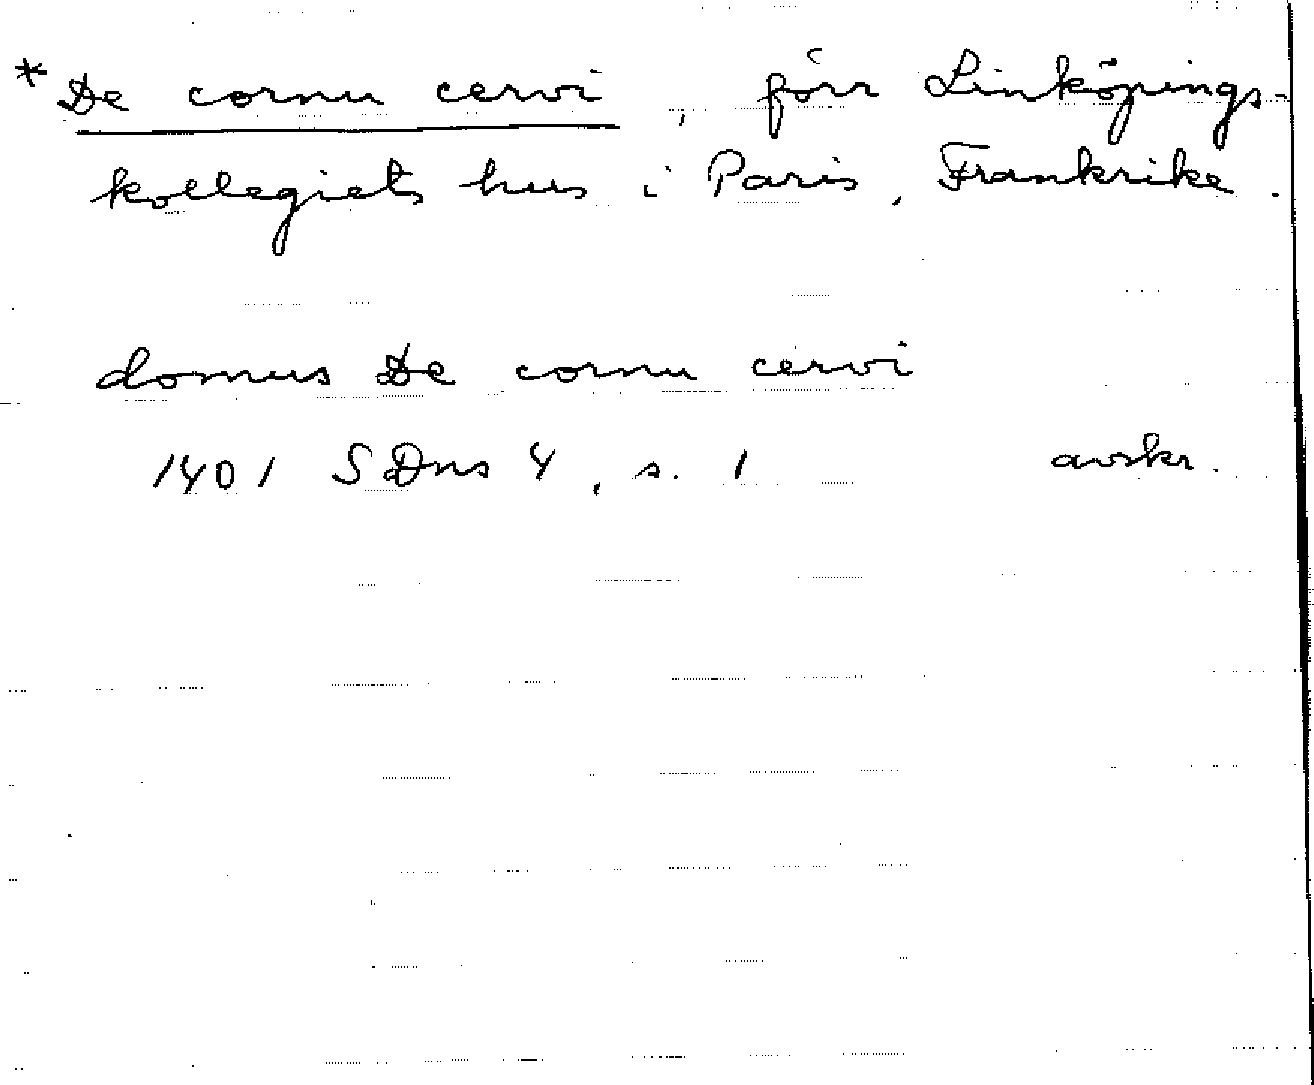 * De cornu cervi, förr Linköpings-
kollegiets hus i Paris, Frankrike.
domus De cornu cervi
1401 SDns 4, s. 1 avskr.